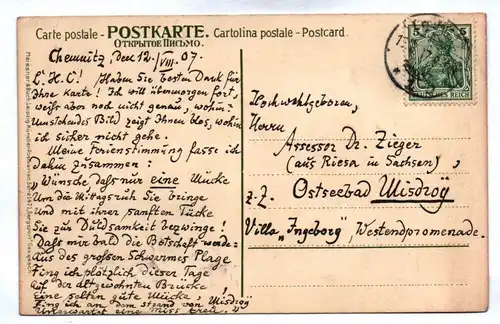 Carte postale – POSTKARTE. Cartolina postale – Postcard
ОТКРЫТОЕ ПИСЬМО.
Chemnitz, den 12./VIII. 07.
L. H. C.! Haben Sie besten Dank für
Ihre Karte! Ich will übermorgen fort,
weiß aber noch nicht genau, wohin.
Umstehendes Bild zeigt Ihnen bloß, wohin
ich sicher nicht gehe.
Meine Ferienstimmung fasse ich
dahin zusammen:
„Wünsche daß nur eine Mücke
Um die Mittagsruh Sie bringe
Und mit ihrer sanften Tücke
Sie zur Duldsamkeit bezwinge!
Daß mir bald die Botschaft werde:
Aus des großen Schwarmes Plage
Fing ich plötzlich dieser Tage
Auf der altgewohnten Brücke
Eine selten gute Mücke,
fing ich an dem Strand von Misdroy
eine Miss treu."
5
DEUTSCHES REICH
Hochwohlgeboren,
Herrn
Assessor Dr. Zieger
(aus Riesa in Sachsen),
z. Z. Ostseebad Misdroy
Villa „Ingeborg", Westendpromenade.